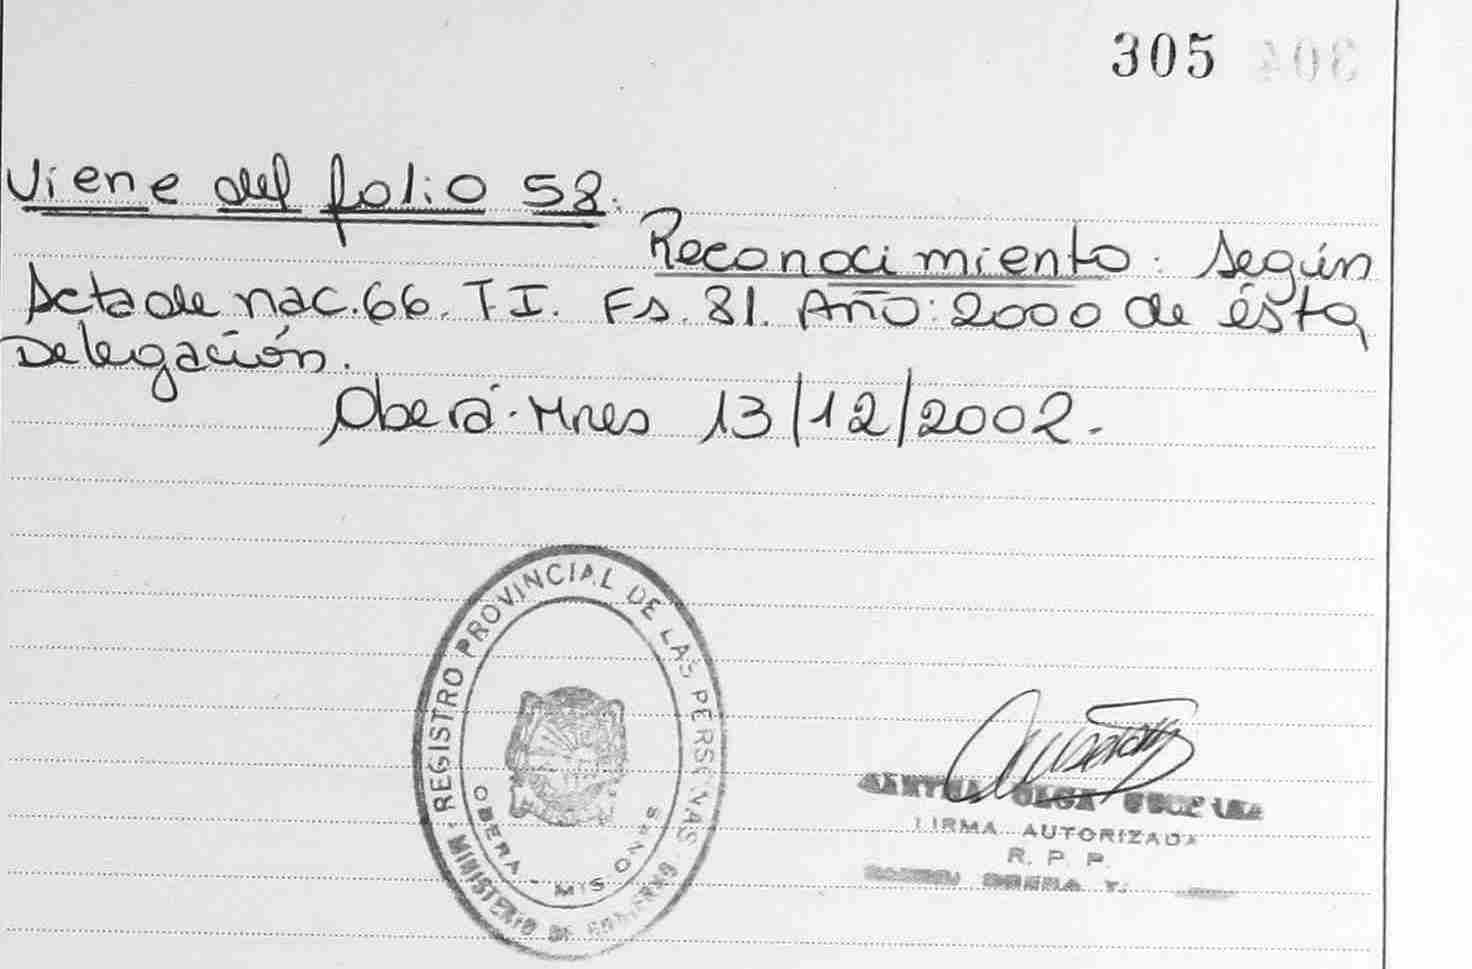 305 304
Viene del folio 58.
Reconocimiento: Según
Acta de nac. 66. TI. Fs. 81. Año: 2000 de ésta
Delegación.
Oberá. Mnes 13/12/2002.
REGISTRO PROVINCIAL DE LAS PERSONAS
MINISTERIO DE GOBIERNO
OBERA - MISIONES
OLGA
FIRMA AUTORIZADA
R. P. P.
OBERA